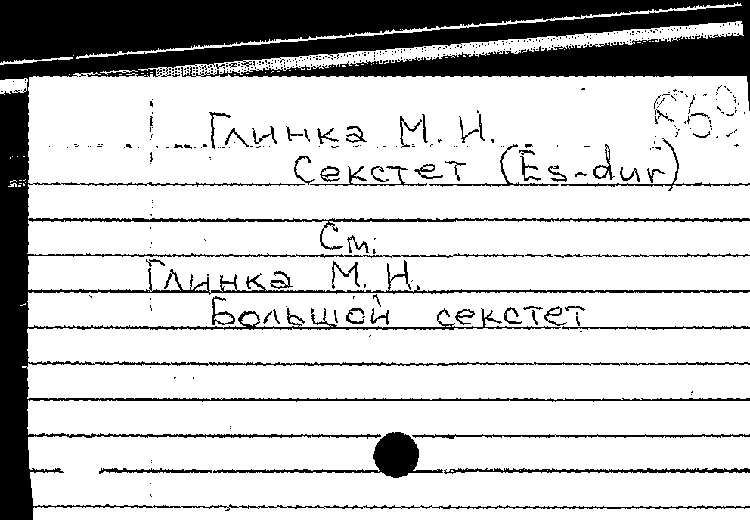 Глинка М. И.
Секстет (Es-dur)
См.
Глинка М. И.
Большой секстет